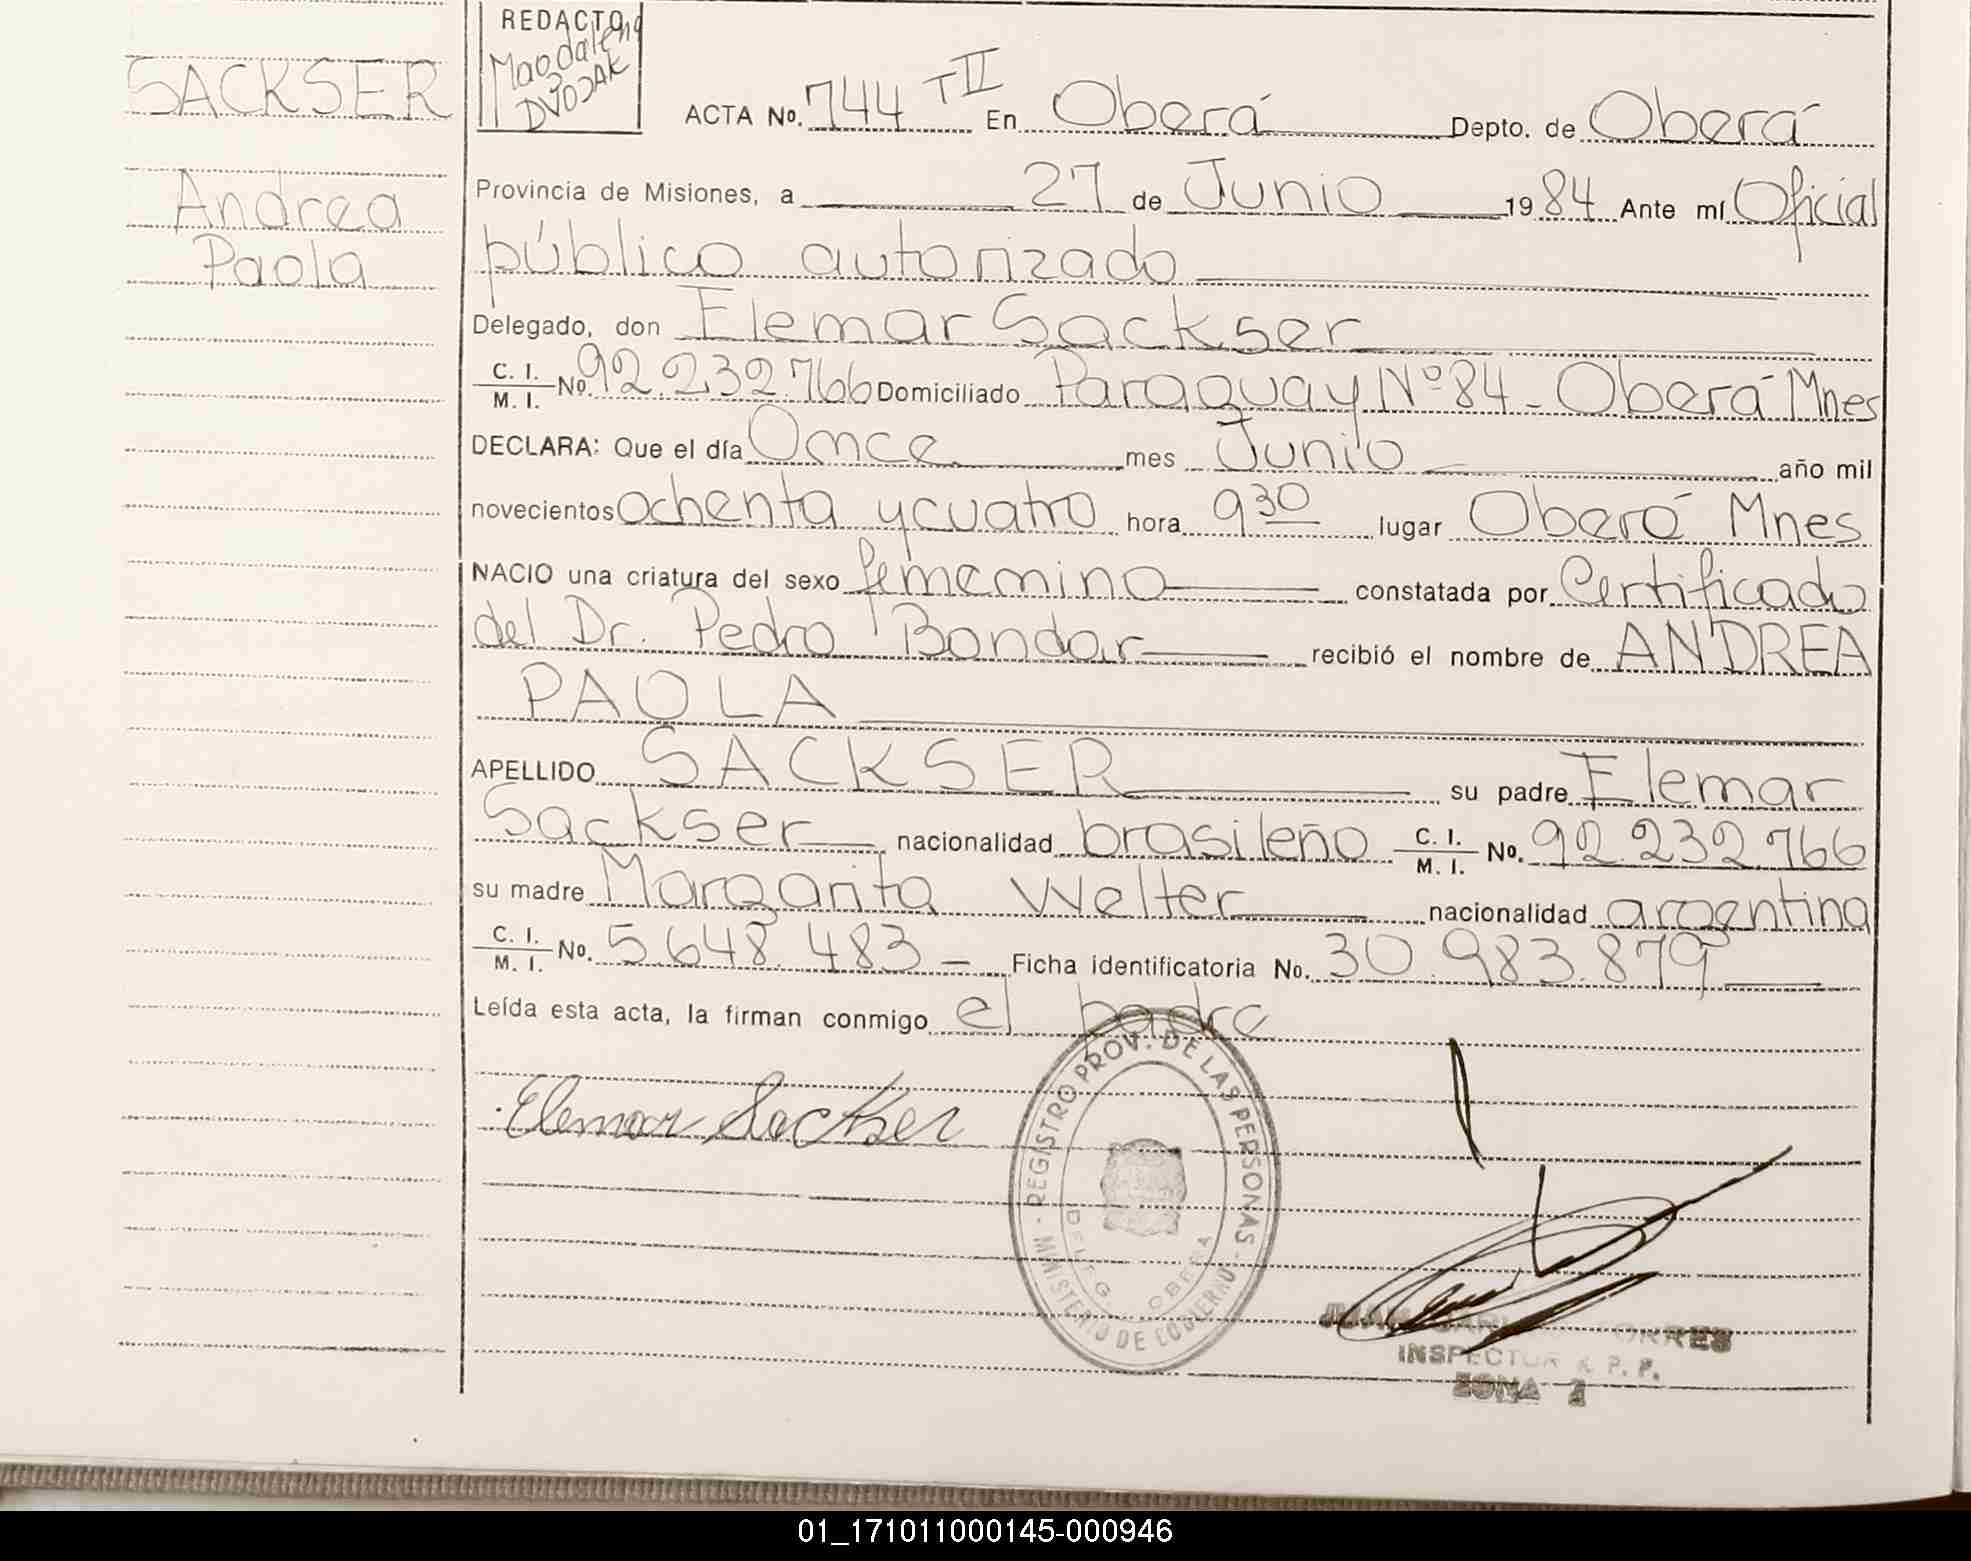 REDACTO
Magdalena
DVOJAK
SACKSER
Andrea
Paola
ACTA No. 744 TII En Oberá Depto. de Oberá
Provincia de Misiones, a 27 de Junio 1984 Ante mí Oficial
público autorizado
Delegado, don Elemar Sackser
C. I. M. I. No. 92.232.766 Domiciliado Paraguay Nº 84 - Oberá Mnes
DECLARA: Que el día Once mes Junio año mil
novecientos ochenta y cuatro hora 9 30 lugar Oberá Mnes
NACIO una criatura del sexo femenino constatada por Certificado
del Dr. Pedro Bondar recibió el nombre de ANDREA
PAOLA
APELLIDO SACKSER su padre Elemar
Sackser nacionalidad brasileño C. I. M. I. No. 92.232.766
su madre Margarita Welter nacionalidad argentina
C. I. M. I. No. 5.648.483 - Ficha identificatoria No. 30.983.879
Leída esta acta, la firman conmigo el padre
Elemar Sackser
REGISTRO PROV. DE LAS PERSONAS
MINISTERIO DE GOBIERNO
DELEG. OBERA
JUAN TORRES
INSPECTOR R. P. P.
ZONA 2
01_171011000145-000946